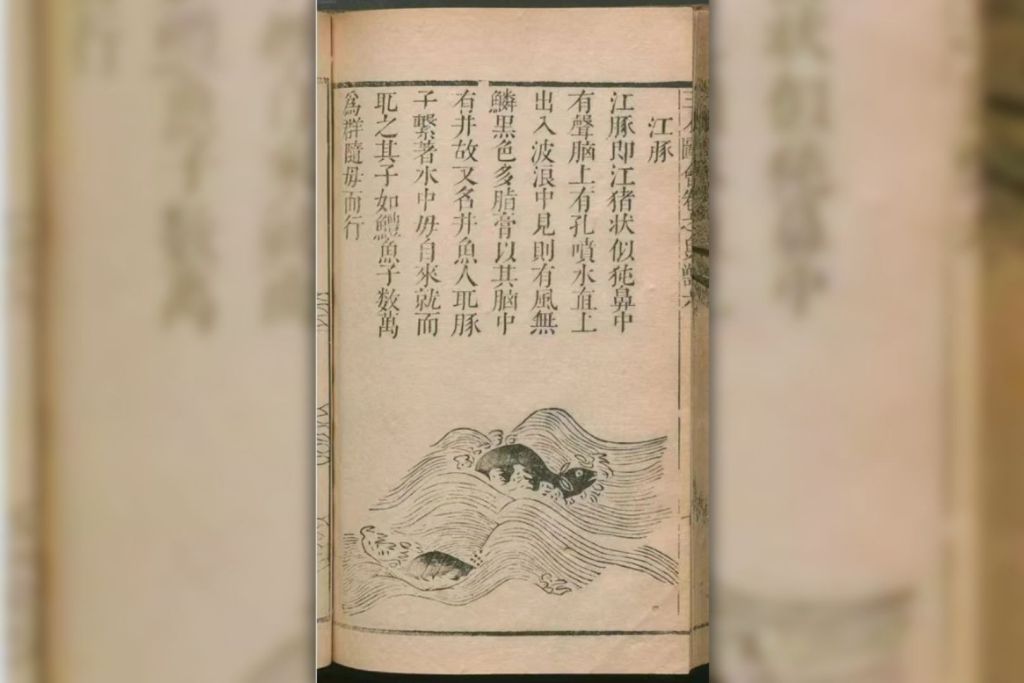 江豚
江豚即江猪状似㹠鼻中
有聲腦上有孔噴水直上
出入波浪中見則有風無
鱗黑色多脂膏以其腦中
有井故又名井魚人取豚
子繫著水中母自來就而
取之其子如鱧魚子数萬
爲群隨母而行
三才圖會